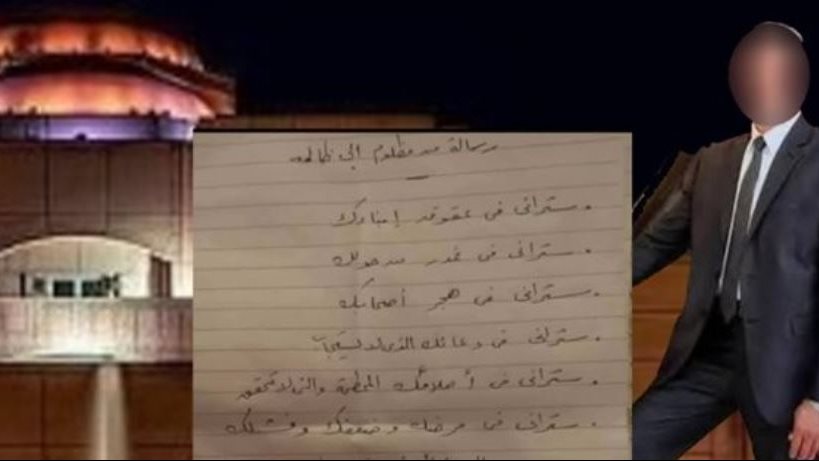 رسالة من مظلوم الى ظالمه
. ستراني في عقوق ابنائك
. ستراني في غدر من حولك
. ستراني في هجر أصحابك
. ستراني في دعائك الذي لا يستجاب
. ستراني في أحلامك المحطمة والتي لا تتحقق
. ستراني في مرضك وضعفك وفشلك